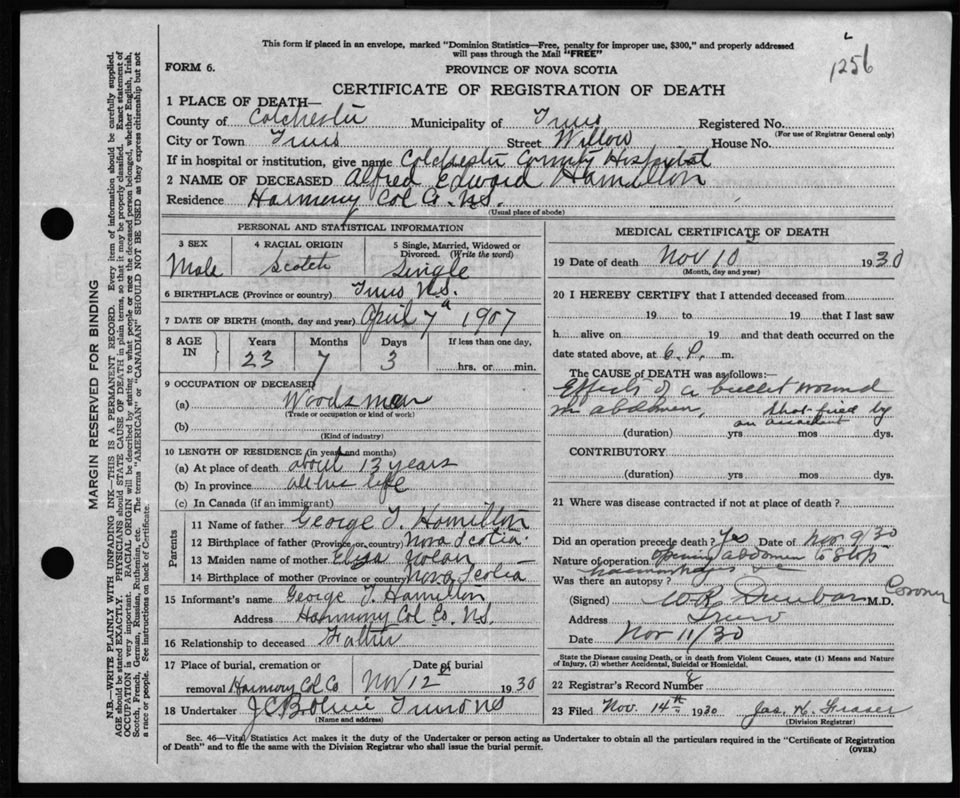 1256
This form if placed in an envelope, marked "Dominion Statistics—Free, penalty for improper use, $300," and properly addressed
will pass through the Mail "FREE"
FORM 6.
PROVINCE OF NOVA SCOTIA
CERTIFICATE OF REGISTRATION OF DEATH
1 PLACE OF DEATH—
County of Colchester Municipality of Truro Registered No.
(For use of Registrar General only)
City or Town Truro Street Willow House No.
If in hospital or institution, give name Colchester County Hospital
2 NAME OF DECEASED Alfred Edward Hamilton
Residence Harmony Col Co. N.S.
(Usual place of abode)
PERSONAL AND STATISTICAL INFORMATION
3 SEX 4 RACIAL ORIGIN 5 Single, Married, Widowed or
Divorced. (Write the word)
Male Scotch Single
6 BIRTHPLACE (Province or country) Truro N.S.
7 DATE OF BIRTH (month, day and year) April 7 1907
8 AGE IN Years Months Days If less than one day,
23 7 3 hrs. or min.
9 OCCUPATION OF DECEASED
(a) Woodsman
(Trade or occupation or kind of work)
(b)
(Kind of industry)
10 LENGTH OF RESIDENCE (in years and months)
(a) At place of death about 13 years
(b) In province all his life
(c) In Canada (if an immigrant)
Parents
11 Name of father George T. Hamilton
12 Birthplace of father (Province or country) Nova Scotia
13 Maiden name of mother Eliza Nolan
14 Birthplace of mother (Province or country) Nova Scotia
15 Informant's name George T. Hamilton
Address Harmony Col Co. N.S.
16 Relationship to deceased Father
17 Place of burial, cremation or Date of burial
removal Harmony Col Co Nov 12 1930
18 Undertaker Truro NS
(Name and address)
MEDICAL CERTIFICATE OF DEATH
19 Date of death Nov 10 1930
(Month, day and year)
20 I HEREBY CERTIFY that I attended deceased from
19 to 19 that I last saw
h alive on 19 and that death occurred on the
date stated above, at 6. P. m.
The CAUSE of DEATH was as follows:—
Effects of a bullet wound
in abdomen, shot fired by
an assailant
(duration) yrs mos dys.
CONTRIBUTORY
(duration) yrs. mos. dys.
21 Where was disease contracted if not at place of death?
Did an operation precede death? Yes Date of Nov 9/30
Nature of operation opening abdomen to stop
haemorrhages
Was there an autopsy?
(Signed) W.R. Dunbar M.D. Coroner
Address Truro
Date Nov 11/30
State the Disease causing Death, or in death from Violent Causes, state (1) Means and Nature
of Injury, (2) whether Accidental, Suicidal or Homicidal.
22 Registrar's Record Number
23 Filed Nov. 14th 1930 Jas. H. Fraser
(Division Registrar)
Sec. 46—Vital Statistics Act makes it the duty of the Undertaker or person acting as Undertaker to obtain all the particulars required in the "Certificate of Registration
of Death" and to file the same with the Division Registrar who shall issue the burial permit.
(OVER)
MARGIN RESERVED FOR BINDING
N.B.—WRITE PLAINLY WITH UNFADING INK—THIS IS A PERMANENT RECORD. Every item of information should be carefully supplied.
AGE should be stated EXACTLY. PHYSICIANS should STATE CAUSE OF DEATH in plain terms, so that it may be properly classified. Exact statement of
OCCUPATION is very important. RACIAL ORIGIN will be described by stating to what people or race the deceased person belonged, whether English, Irish,
Scotch, French, German, Russian, Ruthenian, etc. The terms "AMERICAN" or "CANADIAN" SHOULD NOT BE USED as they express citizenship but not
a race or people. See instructions on back of Certificate.